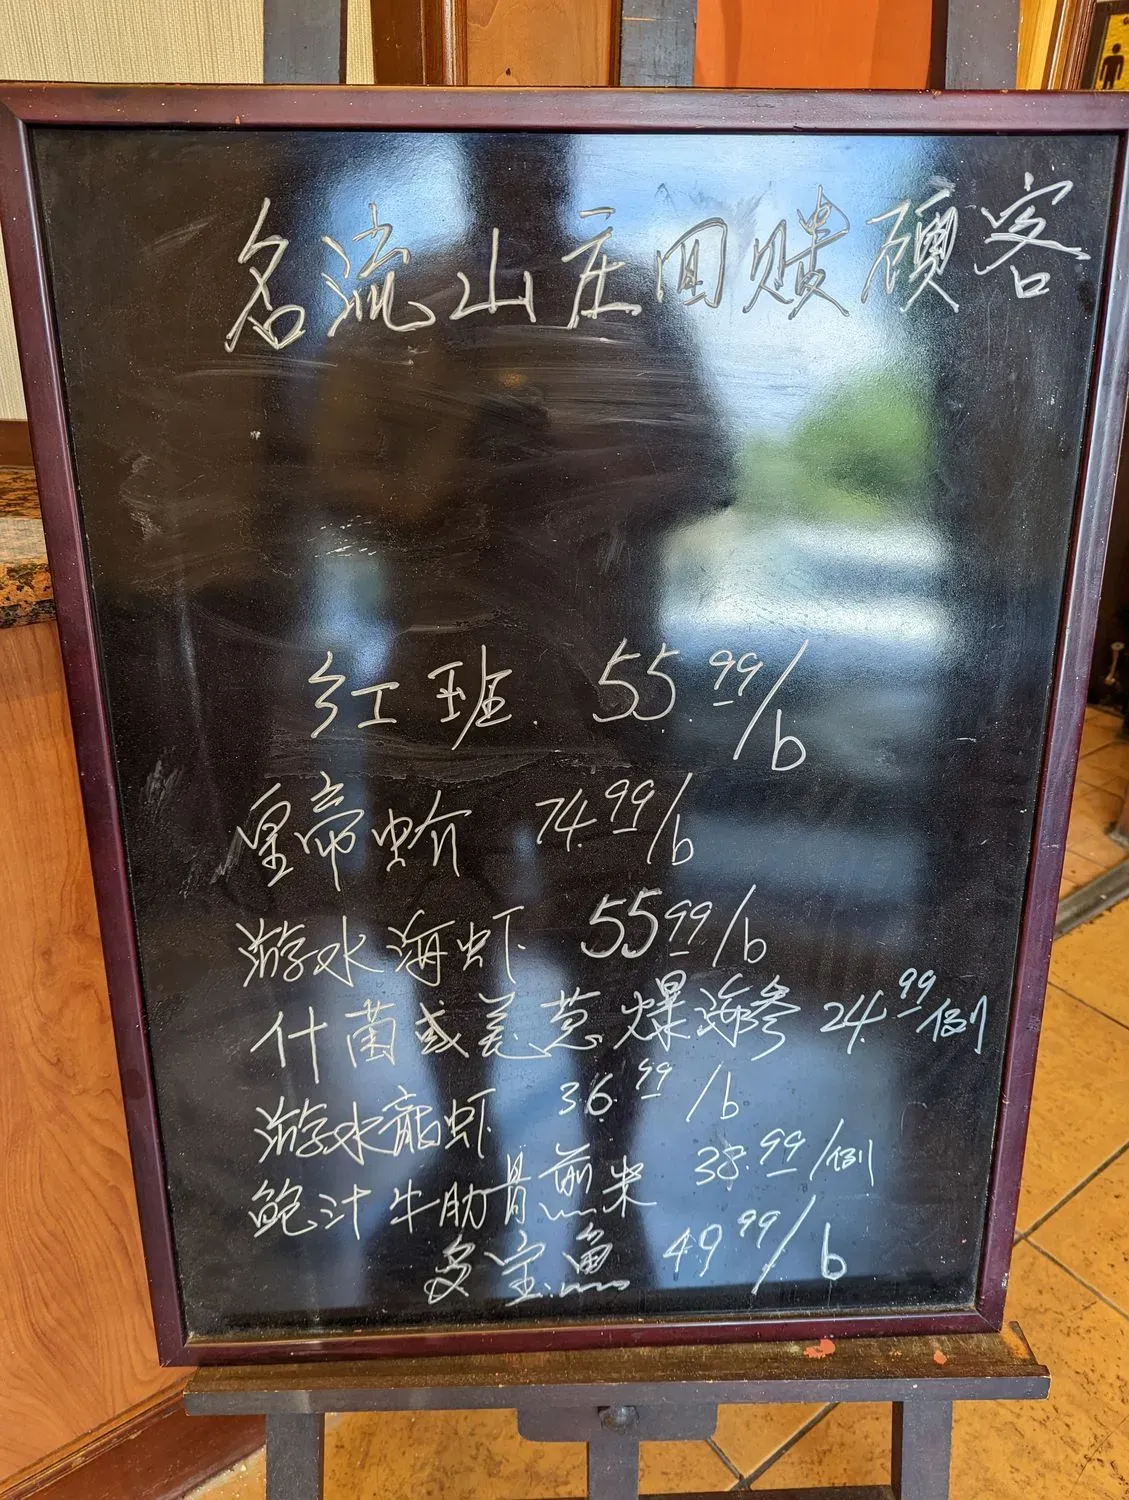 名流山庄回馈顾客
红班 55.99/b
皇帝蚧 74.99/b
游水海虾 55.99/b
什菌或羌葱爆海参 24.99/例
游水龍虾 36.99/b
鲍汁牛肋骨煎米 38.99/例
多宝鱼 49.99/b